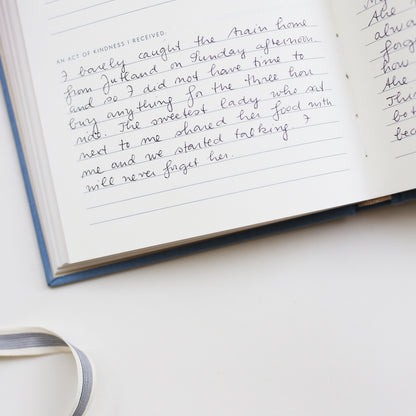 AN ACT OF KINDNESS I RECEIVED.
I barely caught the train home
from Jutland on Sunday afternoon
and so I did not have time to
buy anything for the three hou
ride. The sweetest lady who sat
next to me shared her food with
me and we started talking. I
will never forget her.
My
She
alway
forg
how
She
This
bet
bea